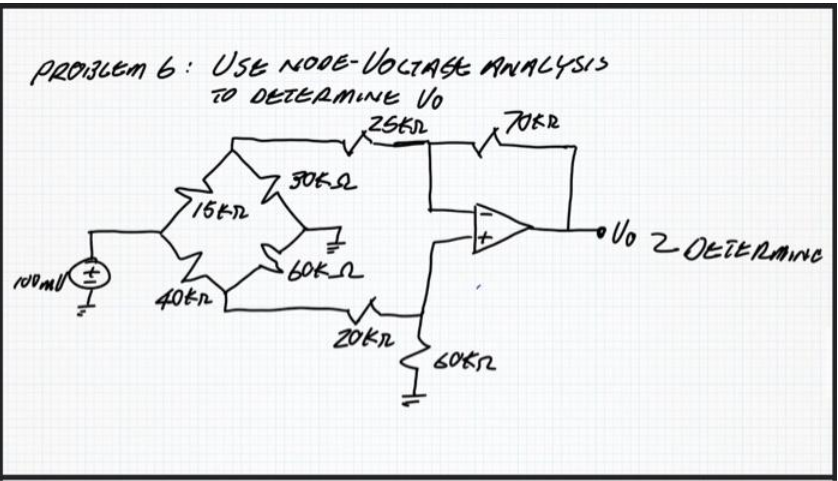 PROBLEM 6: USE NODE-VOLTAGE ANALYSIS
TO DETERMINE Vo
25KΩ
70KΩ
30KΩ
15KΩ
-
+
Vo
2 DETERMINE
100mV
+
-
60KΩ
40KΩ
20KΩ
60KΩ